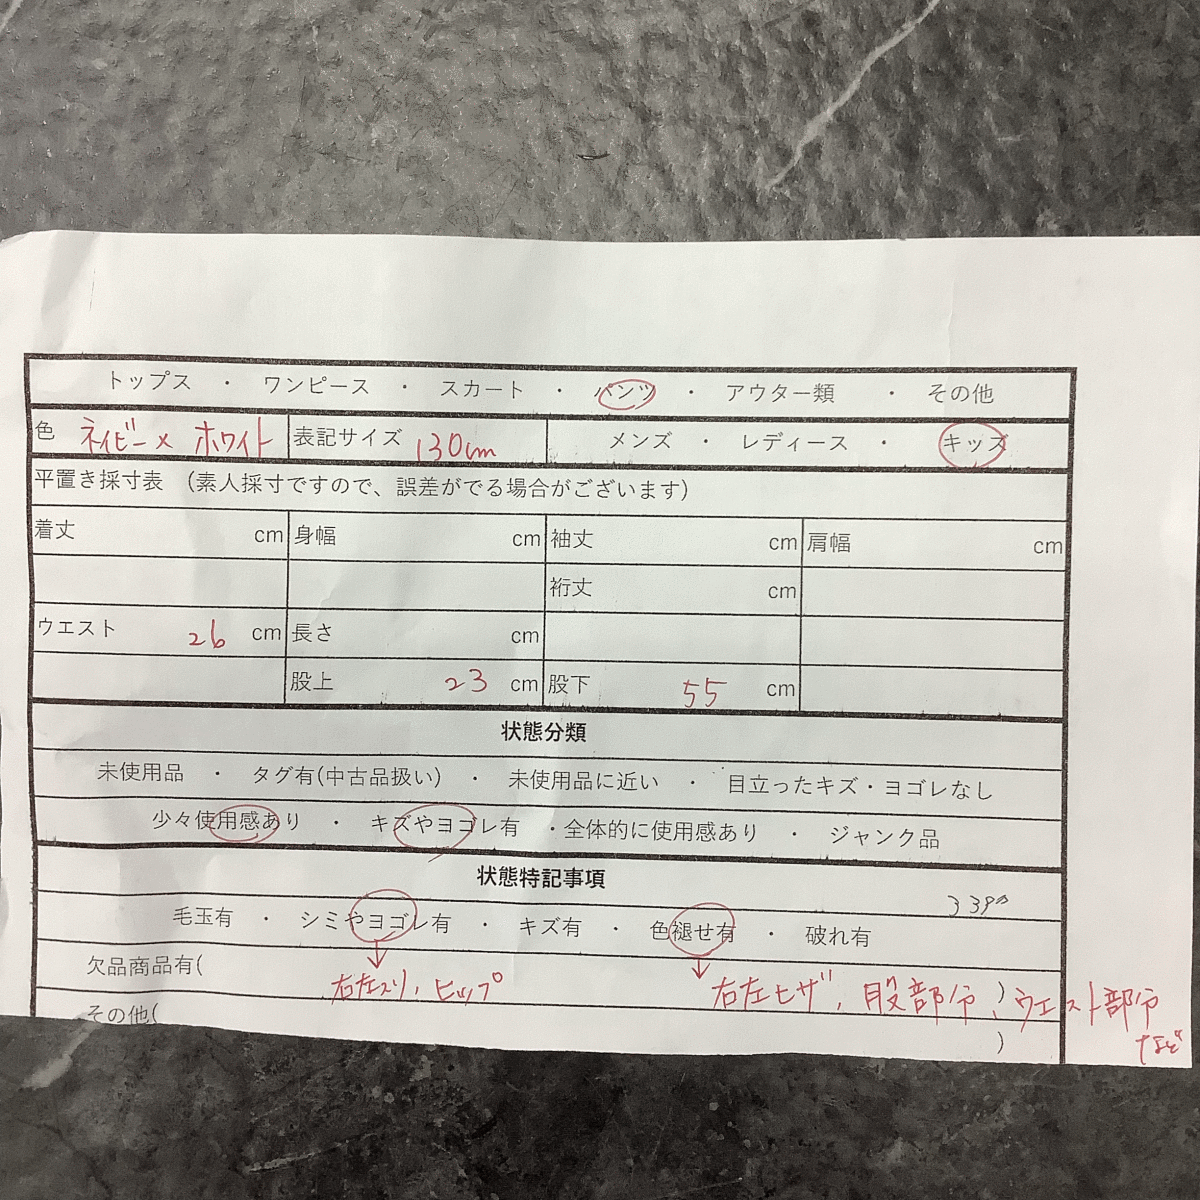 トップス ・ ワンピース ・ スカート ・ パンツ ・ アウター類 ・ その他
色 ネイビー×ホワイト 表記サイズ 130cm メンズ ・ レディース ・ キッズ
平置き採寸表 （素人採寸ですので、誤差がでる場合がございます）
着丈 cm 身幅 cm 袖丈 cm 肩幅 cm
裄丈 cm
ウエスト 26 cm 長さ cm
股上 23 cm 股下 55 cm
状態分類
未使用品 ・ タグ有(中古品扱い) ・ 未使用品に近い ・ 目立ったキズ・ヨゴレなし
少々使用感あり ・ キズやヨゴレ有 ・全体的に使用感あり ・ ジャンク品
状態特記事項
毛玉有 ・ シミやヨゴレ有 ・ キズ有 ・ 色褪せ有 ・ 破れ有
欠品商品有( )
右左スソ、ヒップ
右左ヒザ、股部分、ウエスト部分
など
その他( )